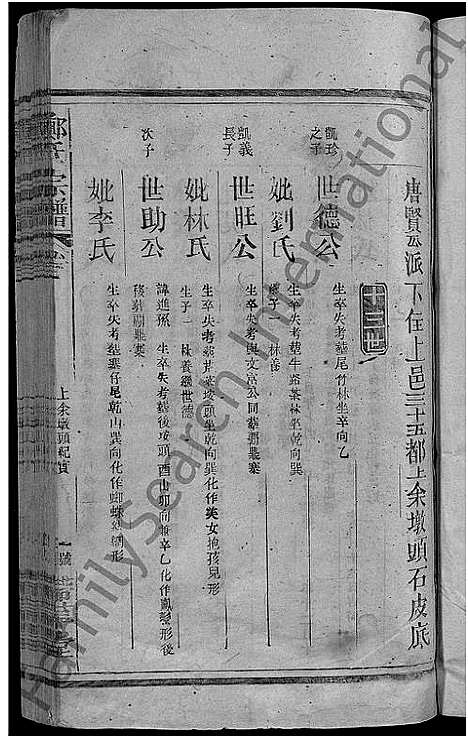 唐賢公派下住上邑三十五都上余墩頭石皮底
十三世
凱珍之子
世德公
生卒失考葬尾竹林坐辛向乙
妣劉氏
生卒失考葬牛路茶林坐乾向巽
子一 林養
凱義長子
世旺公
生卒失考與文富公同葬
妣林氏
生卒失考葬 坡頭坐乾向巽化作美女抱孩兒形
生子一 林養繼世德
次子
世助公
諱進孫 生卒失考葬後坡頭酉山卯向兼辛乙化作鳳鸞形後
移
妣李氏
生卒失考葬寨仔尾乾山巽向化作蜘蛛結網形
鄭氏宗譜
上余墩頭紀實
一號
FamilySearch International